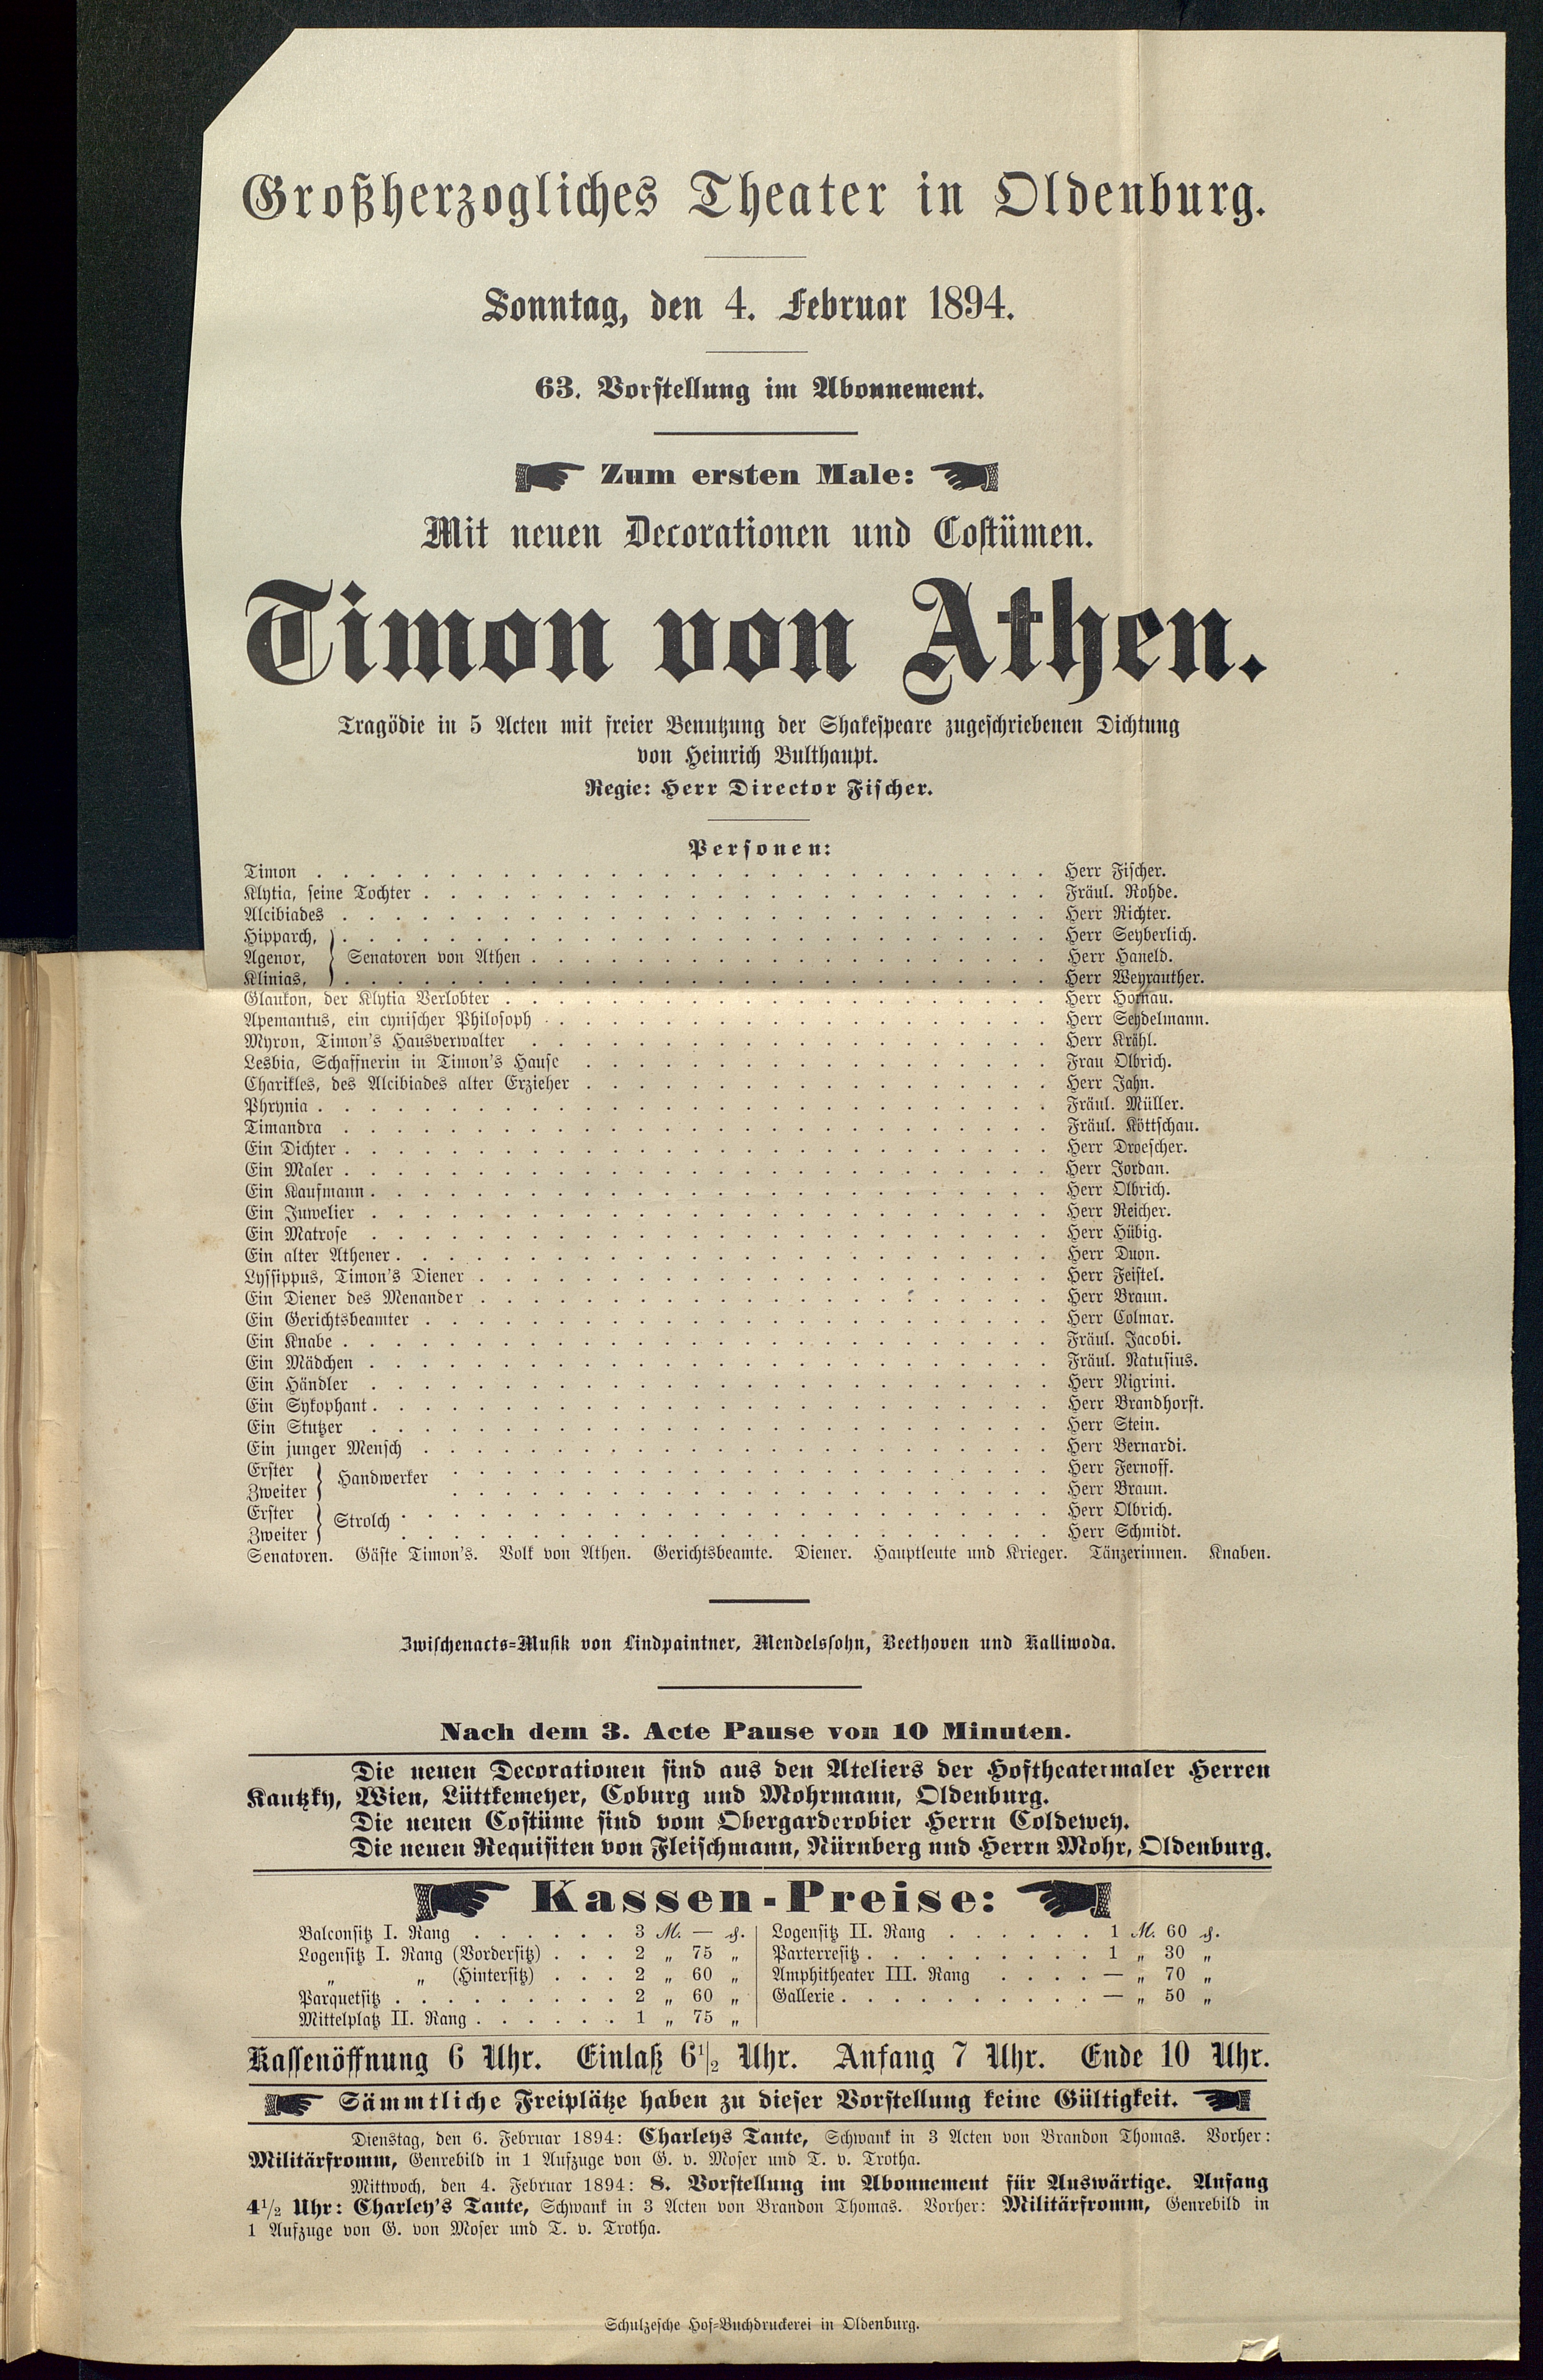 Großherzogliches Theater in Oldenburg.
Sonntag, den 4. Februar 1894.
63. Vorstellung im Abonnement.
Zum ersten Male:
Mit neuen Decorationen und Costümen.
Timon von Athen.
Tragödie in 5 Acten mit freier Benutzung der Shakespeare zugeschriebenen Dichtung
von Heinrich Bulthaupt.
Regie: Herr Director Fischer.
Personen:
Timon . . . . . Herr Fischer.
Klytia, seine Tochter . . . . . Fräul. Rohde.
Alcibiades . . . . . Herr Richter.
Hipparch, } . . . . . Herr Seyberlich.
Agenor, } Senatoren von Athen . . . . . Herr Haneld.
Klinias, } . . . . . Herr Weyrauther.
Glaukon, der Klytia Verlobter . . . . . Herr Hornau.
Apemantus, ein cynischer Philosoph . . . . . Herr Seydelmann.
Myron, Timon's Hausverwalter . . . . . Herr Krähl.
Lesbia, Schaffnerin in Timon's Hause . . . . . Frau Olbrich.
Charikles, des Alcibiades alter Erzieher . . . . . Herr Jahn.
Phrynia . . . . . Fräul. Müller.
Timandra . . . . . Fräul. Köttschau.
Ein Dichter . . . . . Herr Droescher.
Ein Maler . . . . . Herr Jordan.
Ein Kaufmann . . . . . Herr Olbrich.
Ein Juwelier . . . . . Herr Reicher.
Ein Matrose . . . . . Herr Hübig.
Ein alter Athener . . . . . Herr Duon.
Lyssippus, Timon's Diener . . . . . Herr Feistel.
Ein Diener des Menander . . . . . Herr Braun.
Ein Gerichtsbeamter . . . . . Herr Colmar.
Ein Knabe . . . . . Fräul. Jacobi.
Ein Mädchen . . . . . Fräul. Natusius.
Ein Händler . . . . . Herr Nigrini.
Ein Sykophant . . . . . Herr Brandhorst.
Ein Stutzer . . . . . Herr Stein.
Ein junger Mensch . . . . . Herr Bernardi.
Erster } Handwerker . . . . . Herr Fernoff.
Zweiter } . . . . . Herr Braun.
Erster } Strolch . . . . . Herr Olbrich.
Zweiter } . . . . . Herr Schmidt.
Senatoren. Gäste Timon's. Volk von Athen. Gerichtsbeamte. Diener. Hauptleute und Krieger. Tänzerinnen. Knaben.
Zwischenacts=Musik von Lindpaintner, Mendelssohn, Beethoven und Kalliwoda.
Nach dem 3. Acte Pause von 10 Minuten.
Die neuen Decorationen sind aus den Ateliers der Hoftheatermaler Herren
Kautzky, Wien, Lüttkemeyer, Coburg und Mohrmann, Oldenburg.
Die neuen Costüme sind vom Obergarderobier Herrn Coldewey.
Die neuen Requisiten von Fleischmann, Nürnberg und Herrn Mohr, Oldenburg.
Kassen-Preise:
Balconsitz I. Rang . . . . . 3 M. — ₰.
Logensitz I. Rang (Vordersitz) . . . 2 „ 75 „
„ „ (Hintersitz) . . . 2 „ 60 „
Parquetsitz . . . . . 2 „ 60 „
Mittelplatz II. Rang . . . . . 1 „ 75 „
Logensitz II. Rang . . . . . 1 M. 60 ₰.
Parterresitz . . . . . 1 „ 30 „
Amphitheater III. Rang . . . . — „ 70 „
Gallerie . . . . . — „ 50 „
Kassenöffnung 6 Uhr. Einlaß 6½ Uhr. Anfang 7 Uhr. Ende 10 Uhr.
Sämmtliche Freiplätze haben zu dieser Vorstellung keine Gültigkeit.
Dienstag, den 6. Februar 1894: Charleys Tante, Schwank in 3 Acten von Brandon Thomas. Vorher:
Militärfromm, Genrebild in 1 Aufzuge von G. v. Moser und T. v. Trotha.
Mittwoch, den 4. Februar 1894: 8. Vorstellung im Abonnement für Auswärtige. Anfang
4½ Uhr: Charley's Tante, Schwank in 3 Acten von Brandon Thomas. Vorher: Militärfromm, Genrebild in
1 Aufzuge von G. von Moser und T. v. Trotha.
Schulzesche Hof=Buchdruckerei in Oldenburg.